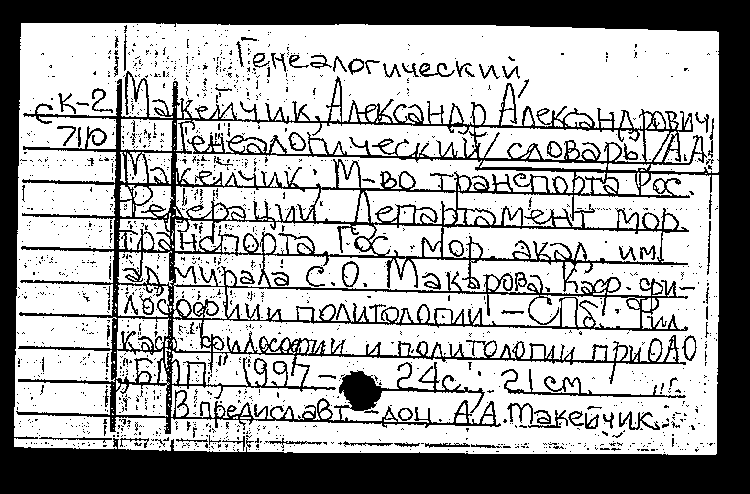 Генеалогический
С К-2 Макейчик, Александр Александрович
7110 Генеалогический / словарь / А.А.
Макейчик; М-во транспорта Рос.
Федерации. Департамент мор.
транспорта, Гос. мор. акад. им.
адмирала С.О. Макарова. Каф. фи-
лософии и политологии. – СПб.: Фил.
каф. философии и политологии при ОАО
„БМП", 1997 – 24с.; 21см.
В предисл. авт. – доц. А.А. Макейчик.